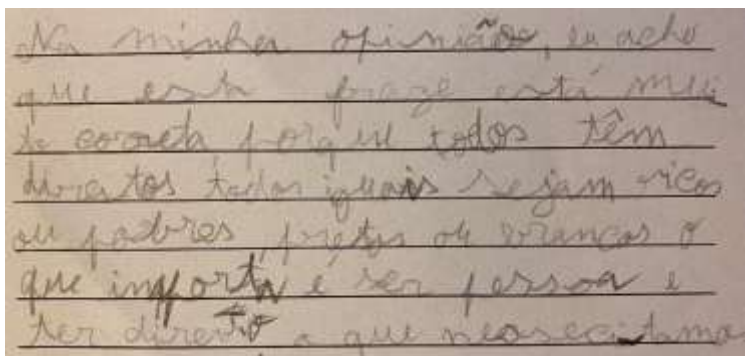 Na minha opinião, eu acho
que esta fraze está mui
to correta, porque todos têm
direitos todos iguais sejam ricos
ou pobres, pretos ou brancos o
que importa é ser pessoa e
ter direito a que